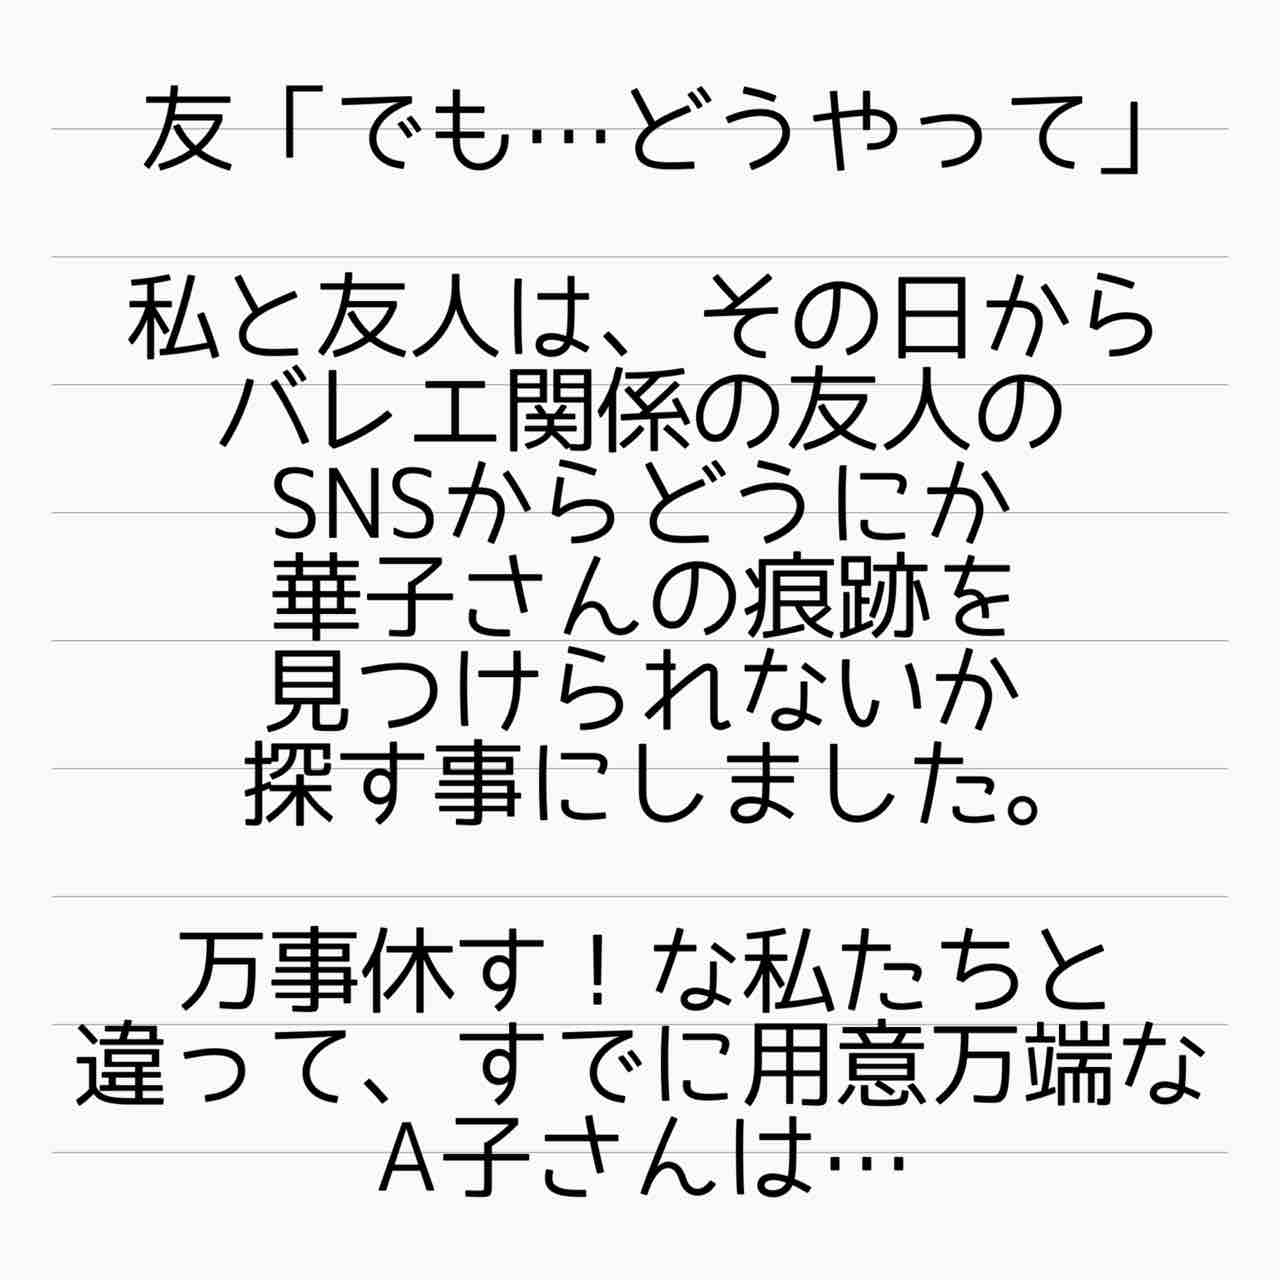 友「でも…どうやって」
私と友人は、その日から
バレエ関係の友人の
SNSからどうにか
華子さんの痕跡を
見つけられないか
探す事にしました。
万事休す！な私たちと
違って、すでに用意万端な
A子さんは…